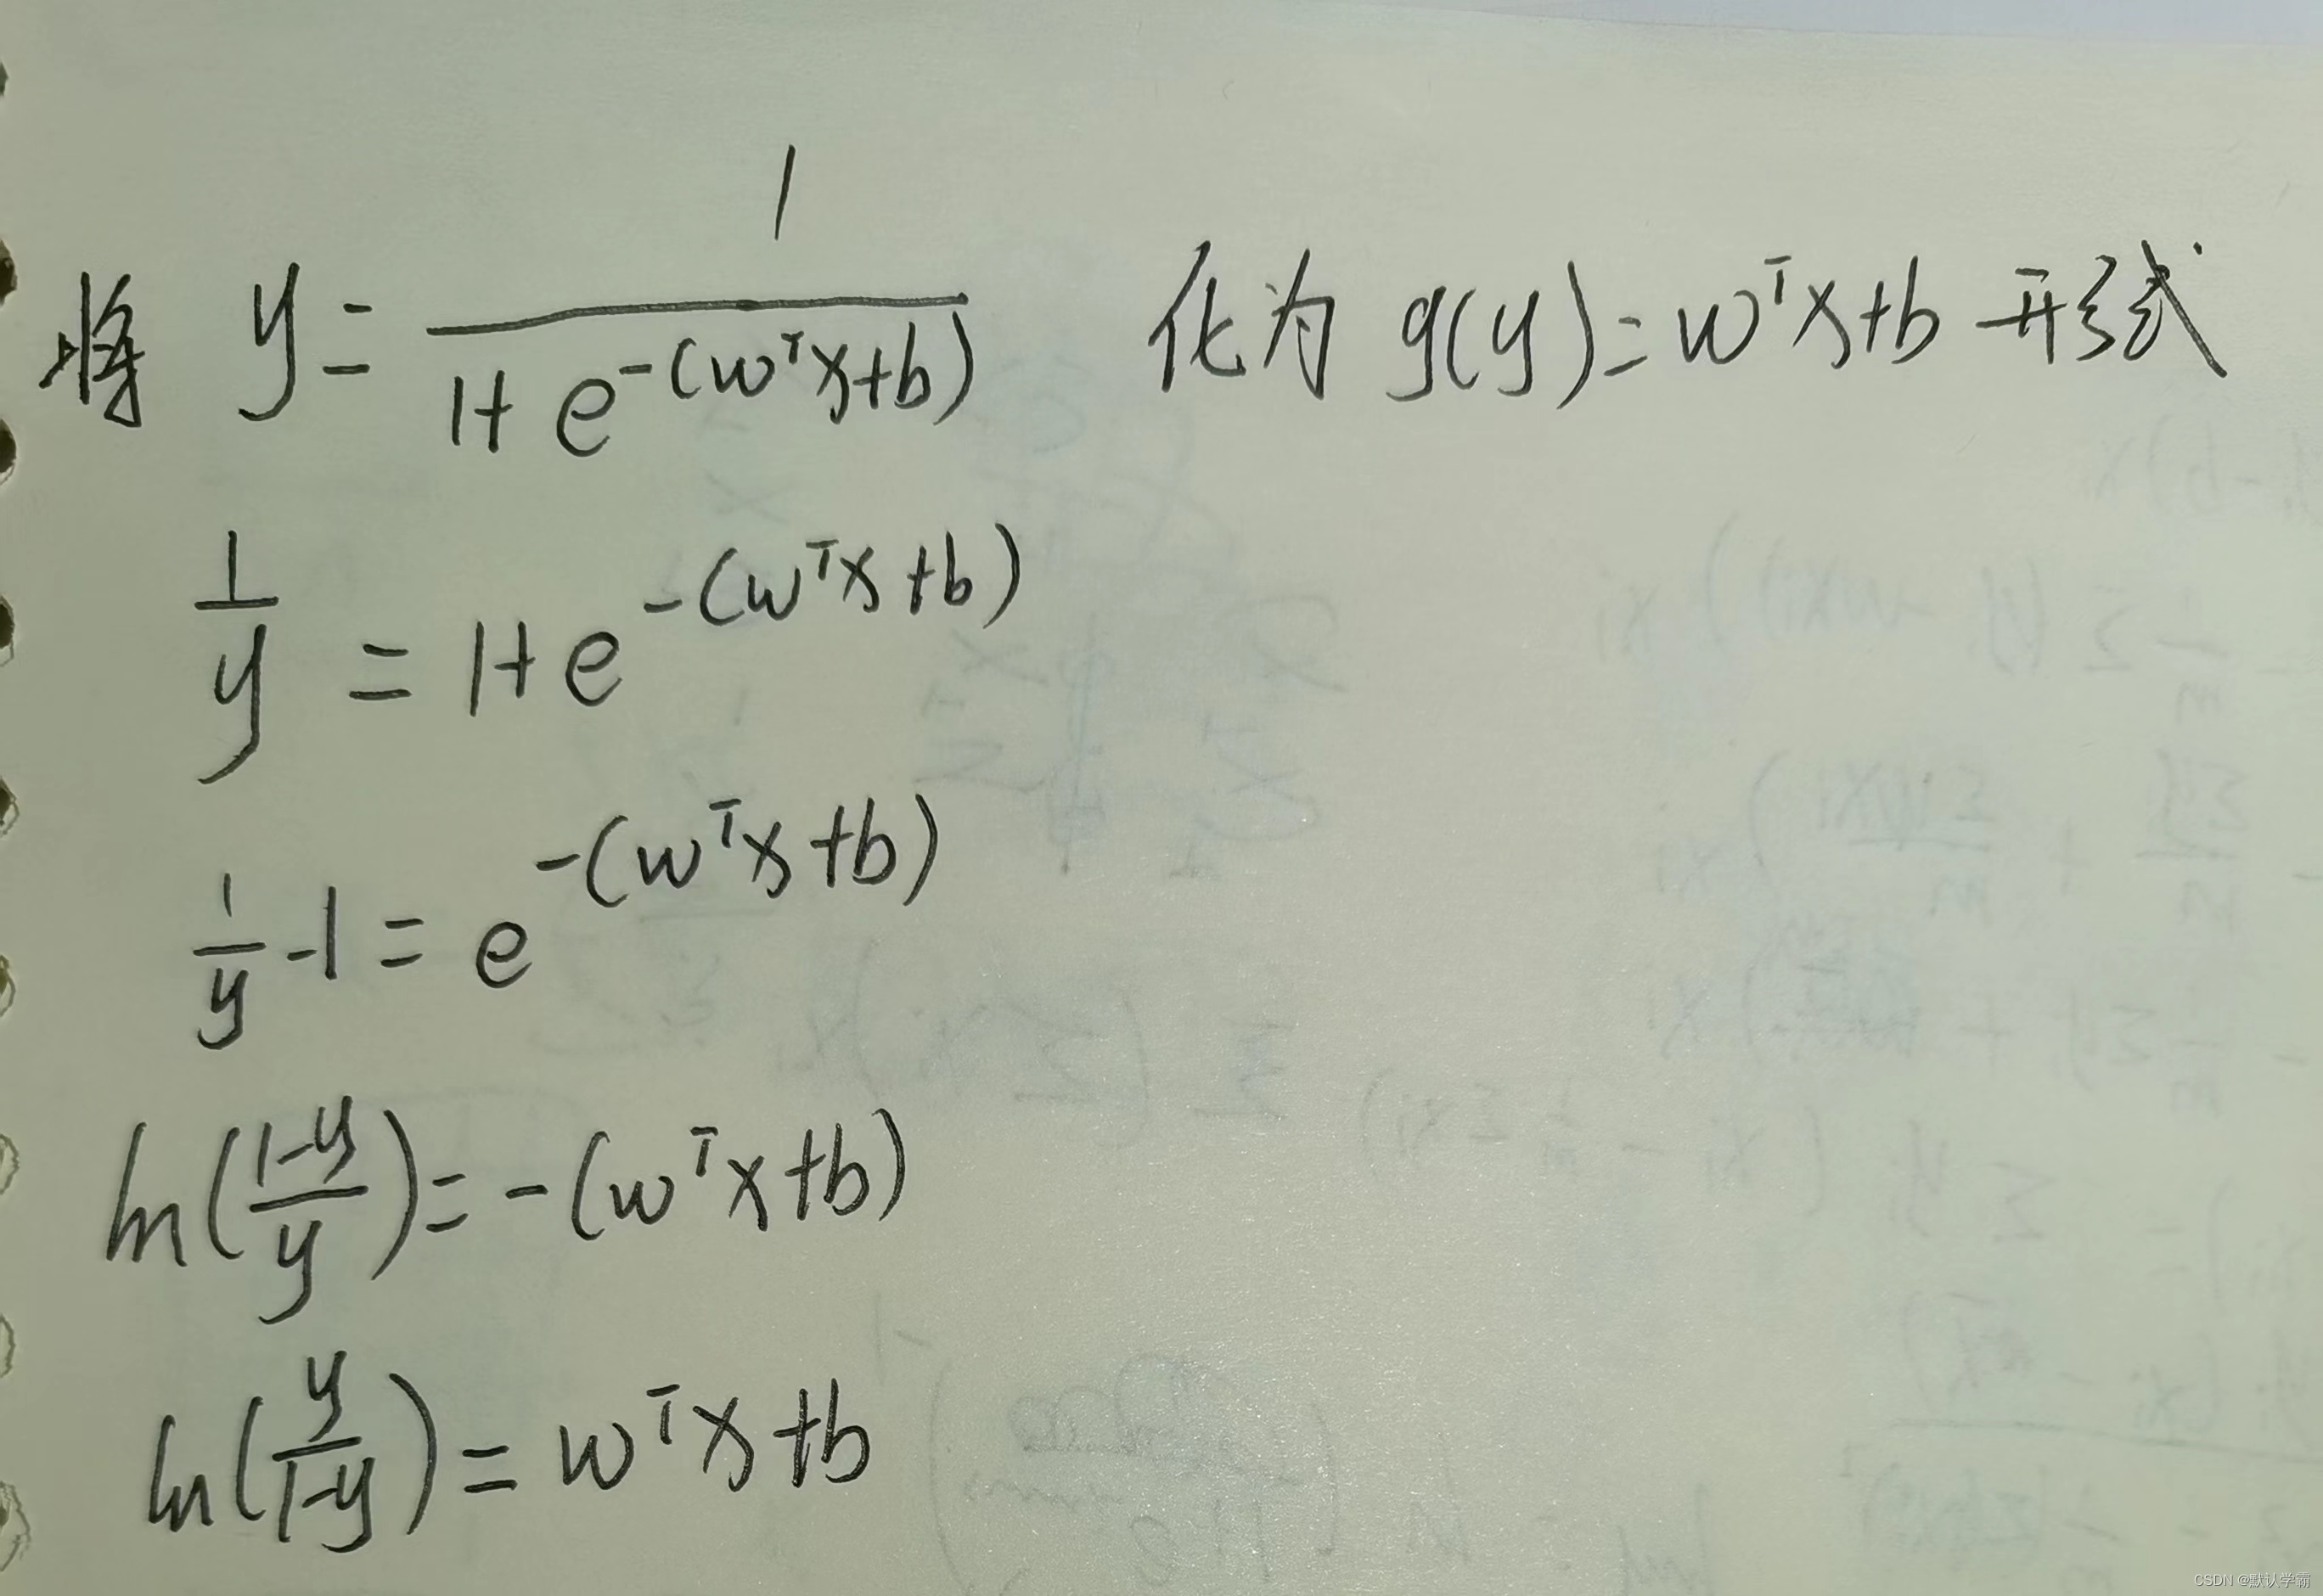 将 y = \frac{1}{1+e^{-(w^T x+b)}} 化为 g(y)=w^T x+b 形式
\frac{1}{y} = 1+e^{-(w^T x+b)}
\frac{1}{y}-1 = e^{-(w^T x+b)}
ln(\frac{1-y}{y}) = -(w^T x+b)
ln(\frac{y}{1-y}) = w^T x+b
CSDN @默认学霸